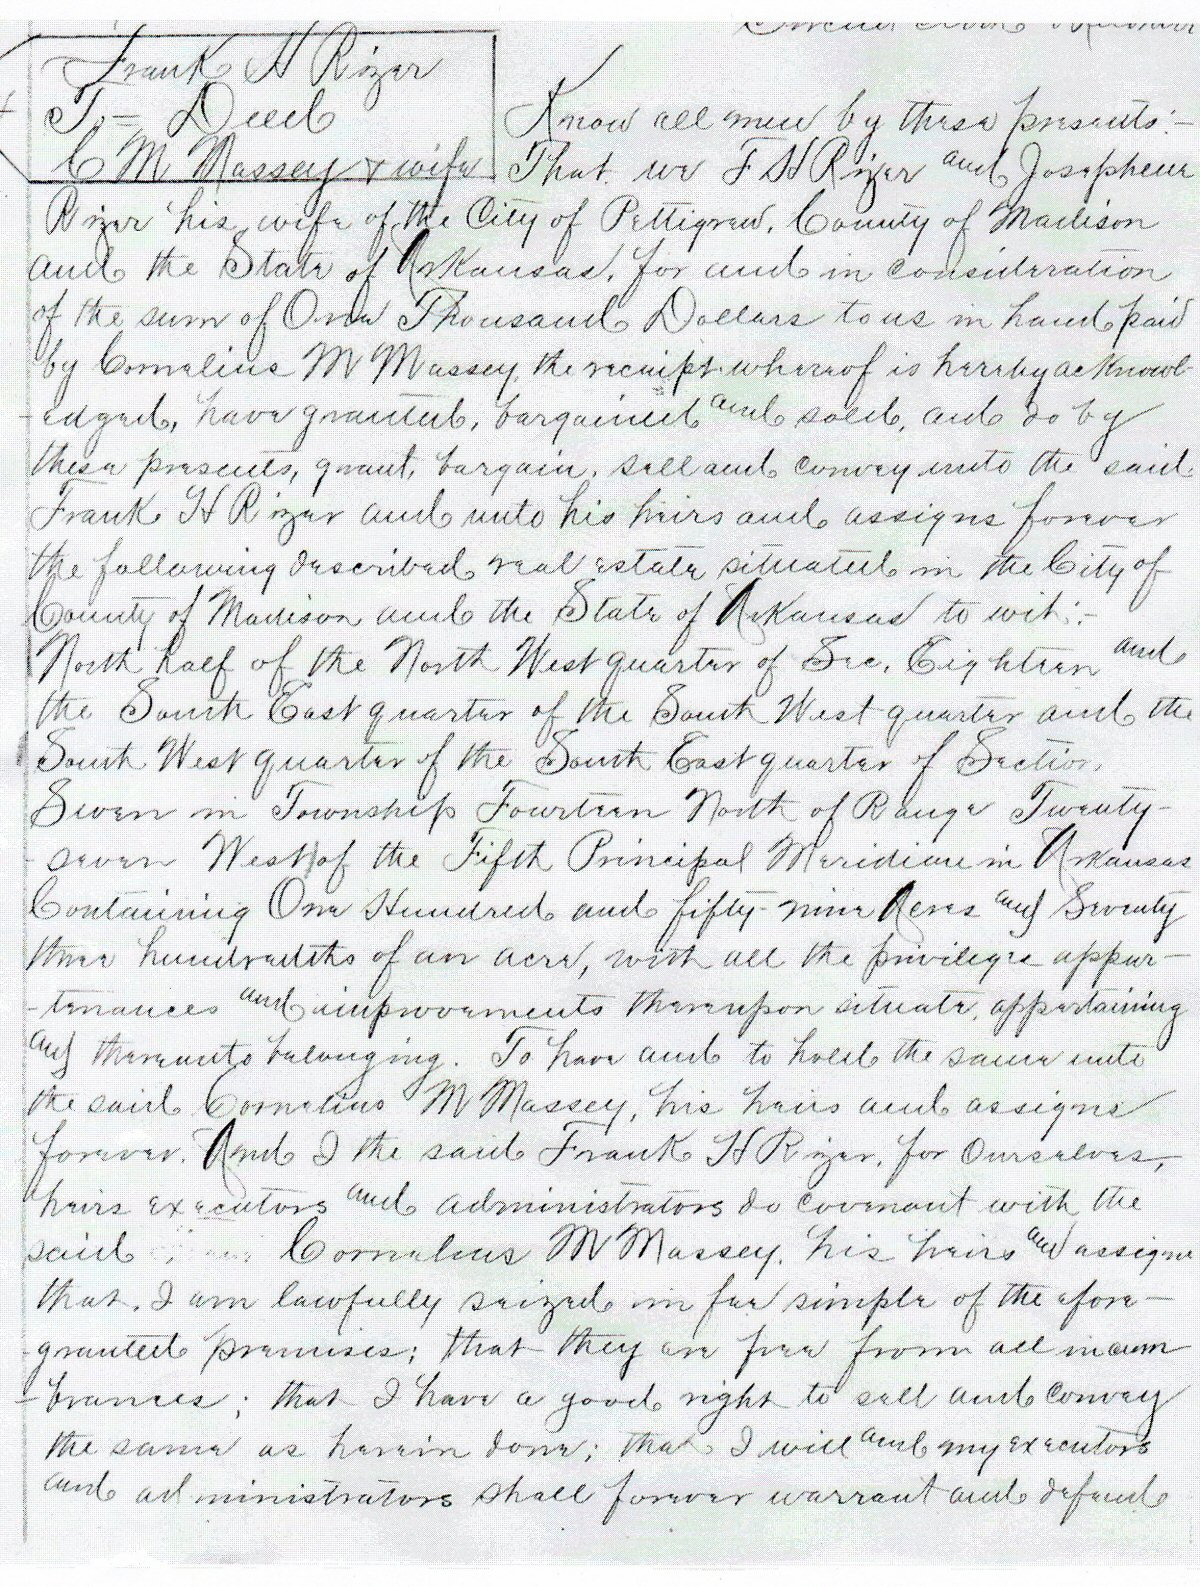 Frank H Rizer
To - Deed
C M Massey & wife
Know all men by these presents:-
That we F H Rizer and Josephine
Rizer his wife of the City of Pettigrew, County of Madison
and the State of Arkansas, for and in consideration
of the sum of One Thousand Dollars to us in hand paid
by Cornelius M Massey, the receipt whereof is hereby acknowl-
-edged, have granted, bargained and sold, and do by
these presents, grant, bargain, sell and convey unto the said
Frank H Rizer and unto his heirs and assigns forever
the following described real estate situated in the City of
County of Madison and the State of Arkansas to wit:-
North half of the North West quarter of Sec. Eighteen and
the South East quarter of the South West quarter and the
South West quarter of the South East quarter of Section
Seven in Township Fourteen North of Range Twenty-
-seven West of the Fifth Principal Meridian in Arkansas
Containing One Hundred and fifty-nine Acres and Seventy
three hundredths of an acre, with all the privilege appur-
-tenances and improvements thereupon situate, appertaining
and thereunto belonging. To have and to hold the same unto
the said Cornelius M Massey, his heirs and assigns
forever. And I the said Frank H Rizer, for Ourselves,
heirs executors and administrators do covenant with the
said Cornelius M Massey, his heirs and assigns
that, I am lawfully seized in fee simple of the afore-
-granted premises; that they are free from all incum
-brances; that I have a good right to sell and convey
the same as herein done; that I will and my executors
and administrators shall forever warrant and defend